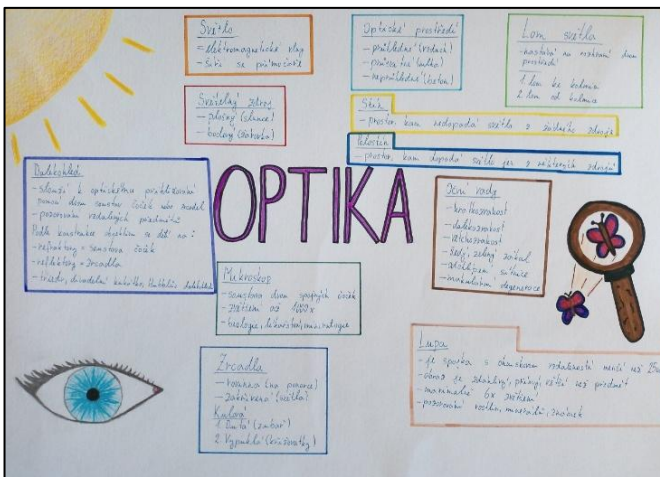 Světlo
= elektromagnetické vlny
- šíří se přímočaře
Optické prostředí
- průhledné (vzduch)
- průsvitné (mlha)
- neprůhledné (beton)
Lom světla
- nastává na rozhraní dvou
prostředí
1 lom ke kolmici
2 lom od kolmice
Světelný zdroj
- plošný (slunce)
- bodový (žárovka)
Stín
- prostor, kam nedopadá světlo z žádného zdroje
Polostín
- prostor, kam dopadá světlo jen z některých zdrojů
Dalekohled
- slouží k optickému přiblížování
pomocí dvou soustav čoček nebo zrcadel
- pozorování vzdálených předmětů
Podle konstrukce objektivu se dělí na:
- refraktory = soustava čoček
- reflektory = zrcadla
- triedr, divadelní kukátko, Hubbleův dalekohled
OPTIKA
Oční vady
- krátkozrakost
- dalekozrakost
- vetchozrakost
- šedý, zelený zákal
- odchlípení sítnice
- makulární degenerace
Mikroskop
- soustava dvou spojných čoček
- zvětšení až 1000x
- biologie, lékařství,
Zrcadla
- rovinná
- zakřivená (světla)
Kulová
1. Dutá (zubař)
2. Vypuklá (křižovatky)
Lupa
- je spojka s ohniskovou vzdáleností menší než 25cm
- obraz je zdánlivý, přímý, větší než předmět
- maximálně 6x zvětšení
- pozorování rostlin, minerálů, známek